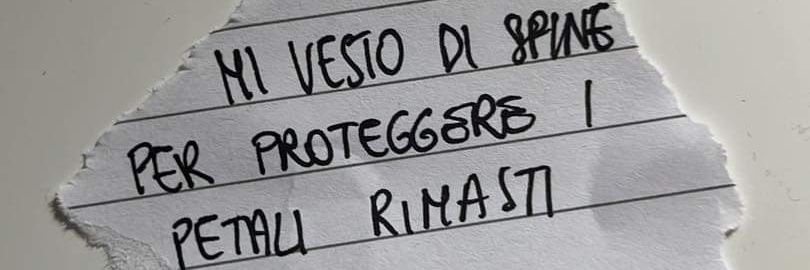 MI VESTO DI SPINE
PER PROTEGGERE I
PETALI RIMASTI